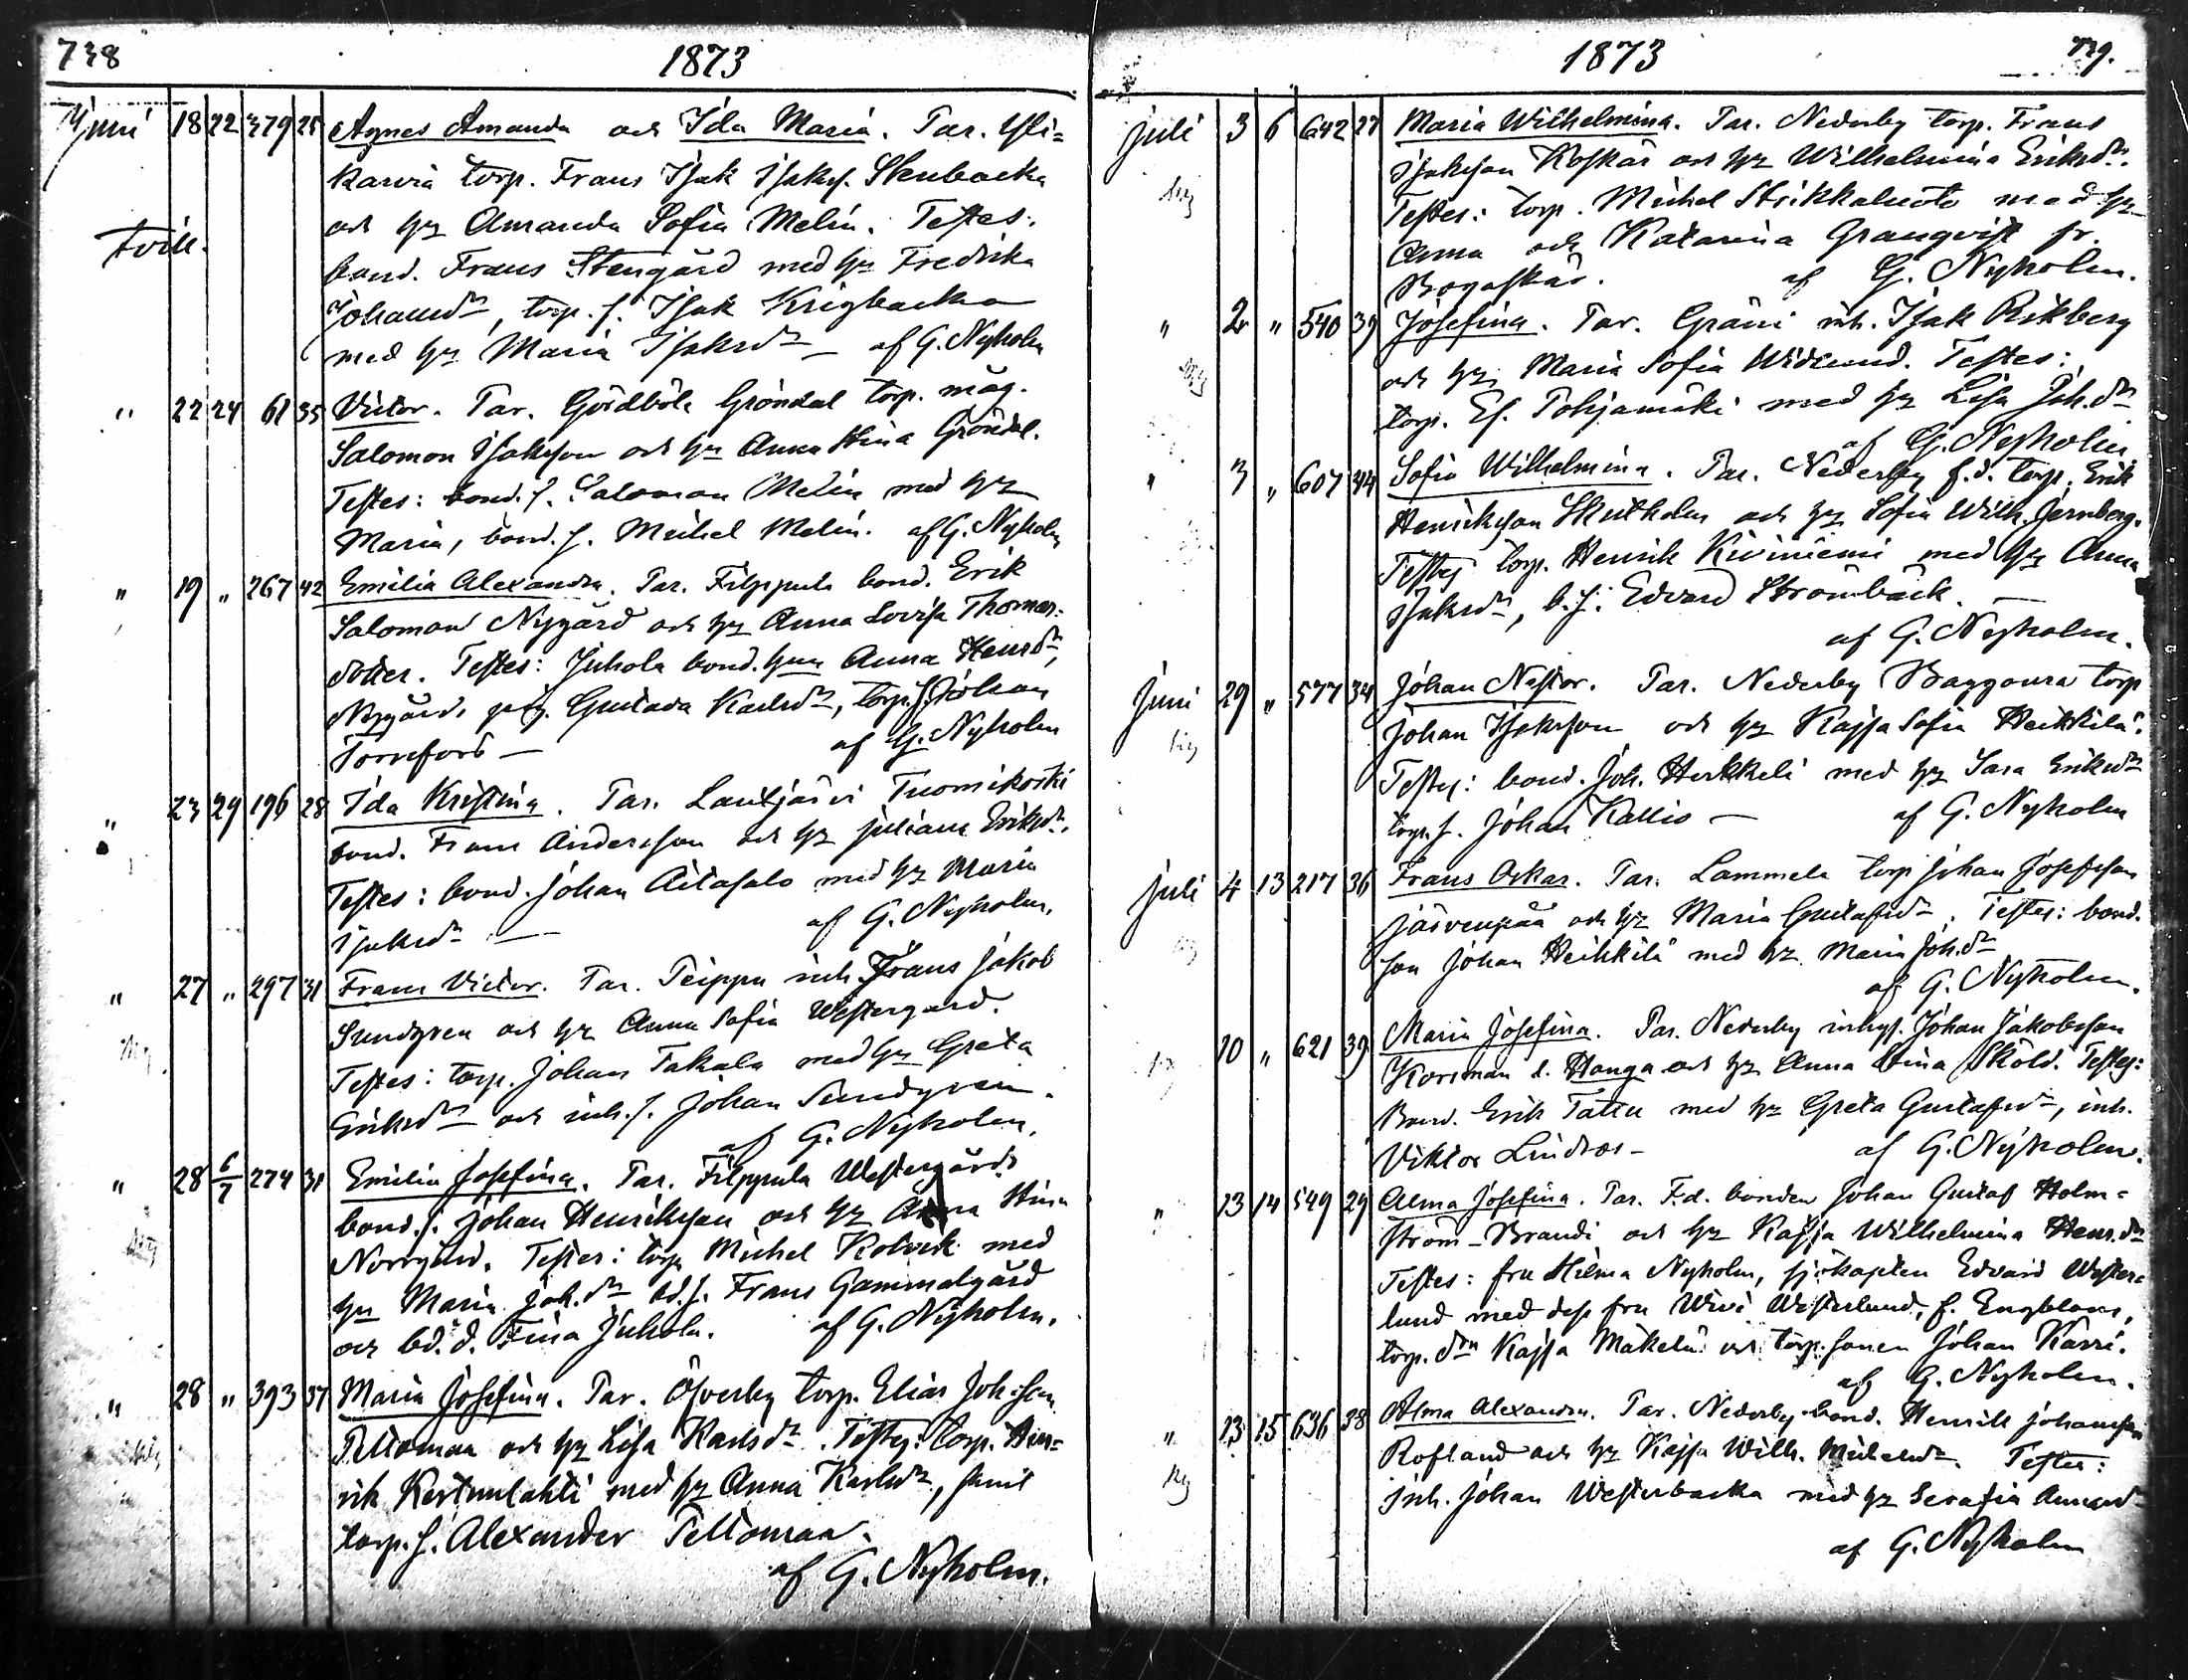 738
1873
Juni 18 22 379 25 Agnes Amanda och Ida Maria. Par. Yli=
karvia torp. Frans Isak Isaks. Stenbacka
tvill. och hu Amanda Sofia Melin. Testes:
bond. Frans Stengård med hu Fredrika
Johansdr, torp. s. Isak Krigbacka
med hu Maria Isaksdr — af G. Nyholm
" 22 24 61 35 Victor. Par. Gördböle Gröndal torp. måg.
Salomon Isaksson och hu Anna Stina Gröndal.
Testes: bond. s. Salomon Melin med hu
Maria, bond. s. Michel Melin. af G. Nyholm
" 19 " 267 42 Emilia Alexandra. Par. Filppula bond. Erik
Salomon Nygård och hu Anna Lovisa Thomas=
dotter. Testes: Juhola bond. hun Anna Henrdr,
Nygårds Gustava Karlsdr, torp. s. Johan
Tornfors — af G. Nyholm
" 23 29 196 28 Ida Kristina. Par. Lautjärvi Tuomikoski
bond. Frans Andersson och hu Juliana Eriksdr.
Testes: bond. Johan Aitasalo med hu Maria
Isaksdr — af G. Nyholm.
" 27 " 297 31 Frans Victor. Par. Peippu inh. Frans Jakob
Sundgren och hu Anna Sofia Westergard.
Testes: torp. Johan Takala med hu Greta
Eriksdr och inh. s. Johan Sundgren.
af G. Nyholm.
" 28 6/7 274 31 Emilia Josefina. Par. Filppula Westergårds
bond. s. Johan Henriksson och hu Anna Stina
Norrgård. Testes: torp. Michel Kolvik med
hu Maria Joh.dr bd. s. Frans Gammalgård
och bd. d. Fina Juhola. af G. Nyholm.
" 28 " 393 37 Maria Josefina. Par. Öfverby torp. Elias Joh:sson
Peltomaa och hu Lisa Karlsdr. Testes: torp. Hen=
rik Kertunlahti med hu Anna Karlsdr, samt
torp. s. Alexander Peltomaa.
af G. Nyholm.
1873
739.
Juli 3 6 642 27 Maria Wilhelmina. Par. Nederby torp. Frans
Isaksson Koskär och hu Wilhelmina Eriksdr.
Testes: torp. Michel Strikkaluoto med hu
Anna och Katarina Granqvist fr.
Bogaskär. af G. Nyholm.
" 2 " 540 39 Josefina. Par. Gräni inh. Isak Rikberg
och hu Maria Sofia Widlund. Testes:
torp. Ef. Pohjamäki med hu Lisa Joh.dr
af G. Nyholm
" 3 " 607 44 Sofia Wilhelmina. Par. Nederby f.d. torp. Erik
Henriksson Skutholm och hu Sofia Wilh. Jernberg.
Testes torp. Henrik Kiviniemi med hu Anna
Isaksdr, b. s: Edvard Strömbäck. —
af G. Nyholm.
Juni 29 " 577 34 Johan Nestor. Par. Nederby Baggoura torp
Johan Isaksson och hu Kajsa Sofia Heikkilä.
Testes: bond. Joh. Herkkeli med hu Sara Eriksdr
torp. s. Johan Kallio — af G. Nyholm
Juli 4 13 217 36 Frans Oskar. Par. Lammela torp Johan Josefsson
Järvenpää och hu Maria Gustafsdr. Testes: bond.
son Johan Heikkilä med hu Maria Joh.dr
af G. Nyholm.
10 " 621 39 Maria Josefina. Par. Nederby inhys. Johan Jakobsson
Korsman l. Hanga och hu Anna Stina Sköld. Testes:
Bond. Erik Tättu med hu Greta Gustafsdr, inh.
Viktor Lindros - af G. Nyholm.
" 13 14 549 29 Alma Josefina. Par. F.d. bonden Johan Gustaf Holm=
ström-Brandi och hu Kajsa Wilhelmina Henr.dr
Testes: fru Hilma Nyholm, sjökapten Edvard Wester=
lund med dess fru Wivi Westerlund, f. Engblom,
torp. drn Kajsa Mäkelä och torp. sonen Johan Karri.
af G. Nyholm.
" 13 15 636 38 Alma Alexandra. Par. Nederby bond. Henrik Johansson
Rofland och hu Kajsa Wilh. Michelsdr. Testes:
Inh. Johan Westerbacka med hu Serafia
af G. Nyholm